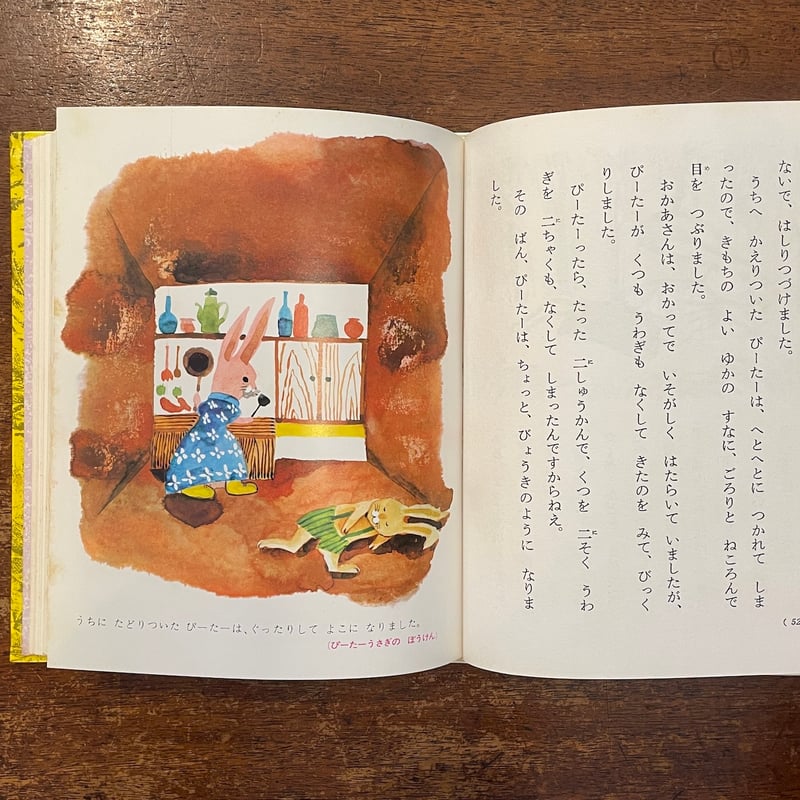 ないで、はしりつづけました。
うちへ かえりついた ぴーたーは、へとへとに つかれて しま
ったので、きもちの よい ゆかの すなに、ごろりと ねころんで
目を つぶりました。
おかあさんは、おかってで いそがしく はたらいて いましたが、
ぴーたーが くつも うわぎも なくして きたのを みて、びっく
りしました。
ぴーたーったら、たった 二しゅうかんで、くつを 二そく うわ
ぎを 二ちゃくも、なくして しまったんですからねえ。
その ばん、ぴーたーは、ちょっと、びょうきのように なりま
した。
うちに たどりついた ぴーたーは、ぐったりして よこに なりました。
(ぴーたーうさぎの ぼうけん)
(52